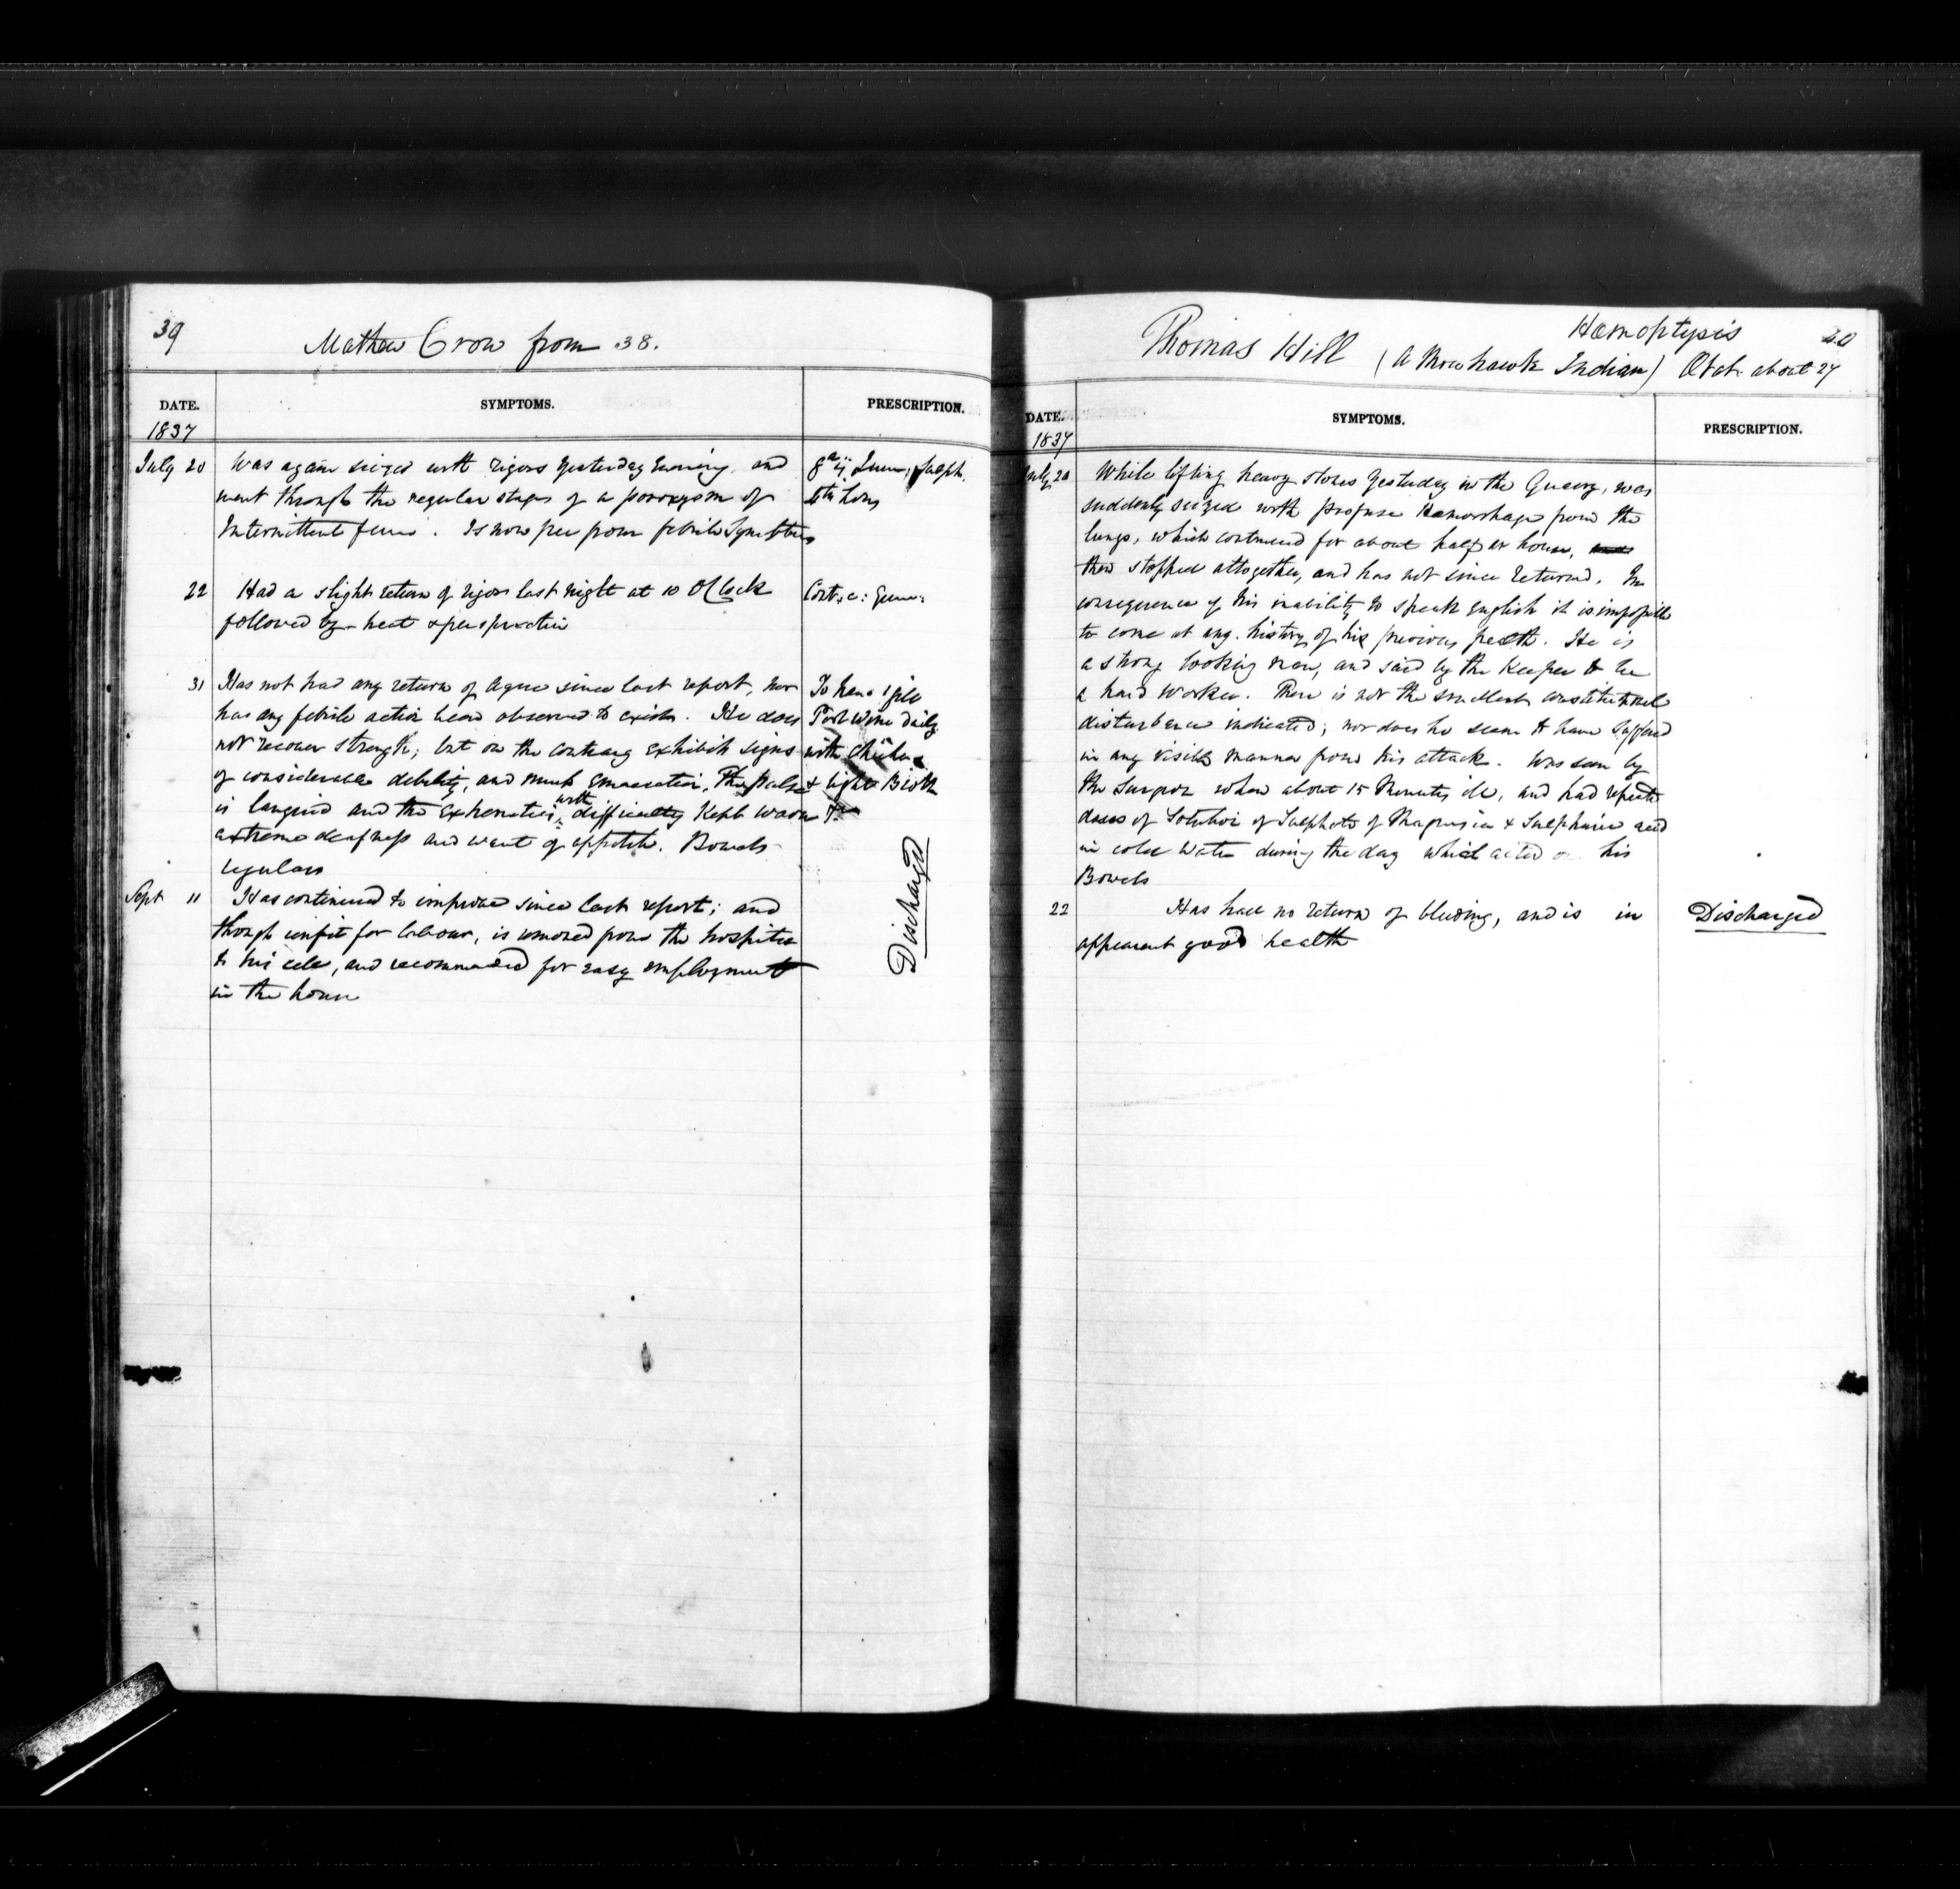 39
Mathew Crow from 38.
DATE. SYMPTOMS. PRESCRIPTION.
1837
July 20 Was again siezed with rigors yesterday Evening, and
went through the regular stages of a paroxysm of
Intermittent fever. Is now free from febrile Symptoms
Sulph.
22 Had a slight return of rigors last night at 10 OClock
followed by heat & perspiration
31 Has not had any return of Ague since last report, nor
has any febrile action been observed to exist. He does
not recover strength; but on the contrary exhibits signs
of considerable debility, and much Emaciation, The pulse
is languid and the Extremities with difficulty Kept warm
extreme deafness and want of appetite. Bowels
regular
To have 1 gill
Port Wine daily
with Chicken
& light Broth
Sept 11 Has continued to improve since last report; and
though unfit for labour, is removed from the hospital
to his cell, and recommended for easy employment
in the house
Discharged
40
Hæmoptysis
Thomas Hill (A Mowhawk Indian) Ætat. about 27
DATE. SYMPTOMS. PRESCRIPTION.
1837
July 20 While lifting heavy stones yesterday in the Quarry, was
suddenly siezed with profuse Hemorrhage from the
lungs, which continued for about half an hour,
then stopped altogether, and has not since returned. In
consequence of his inability to speak English it is impossible
to come at any history of his previous health. He is
a strong looking man, and said by the Keeper to be
a hard worker. There is not the smallest constitutional
disturbance indicated; nor does he seem to have suffered
in any visible manner from his attack. Was seen by
the Surgeon when about 15 Minutes ill, and had repeated
doses of Solution of Sulphate of Magnesia & Sulphuric acid
in cold Water during the day which acted on his
Bowels
22 Has had no return of bleeding, and is in
apparent good health
Discharged